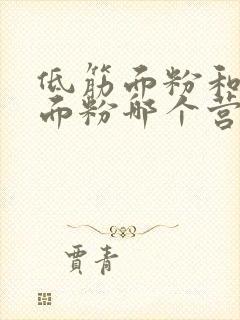 低筋面粉和
面粉哪个营
贾青